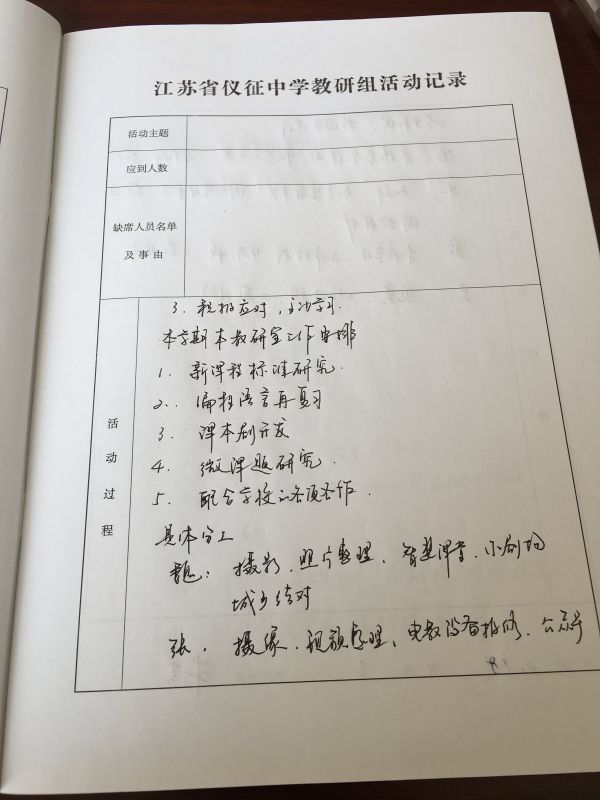 江苏省仪征中学教研组活动记录
活动主题
应到人数
缺席人员名单
及事由
活动过程
3. 积极应对，主动学习.
本学期本教研室工作安排
1. 新课程标准研究.
2. 编程语言再复习
3. 课本剧开发
4. 微课题研究.
5. 配合学校的各项工作.
具体分工
魏: 摄影. 照片整理. 智慧课堂. 小剧场
城乡结对
张. 摄像. 视频整理、电教设备报修. 公众号